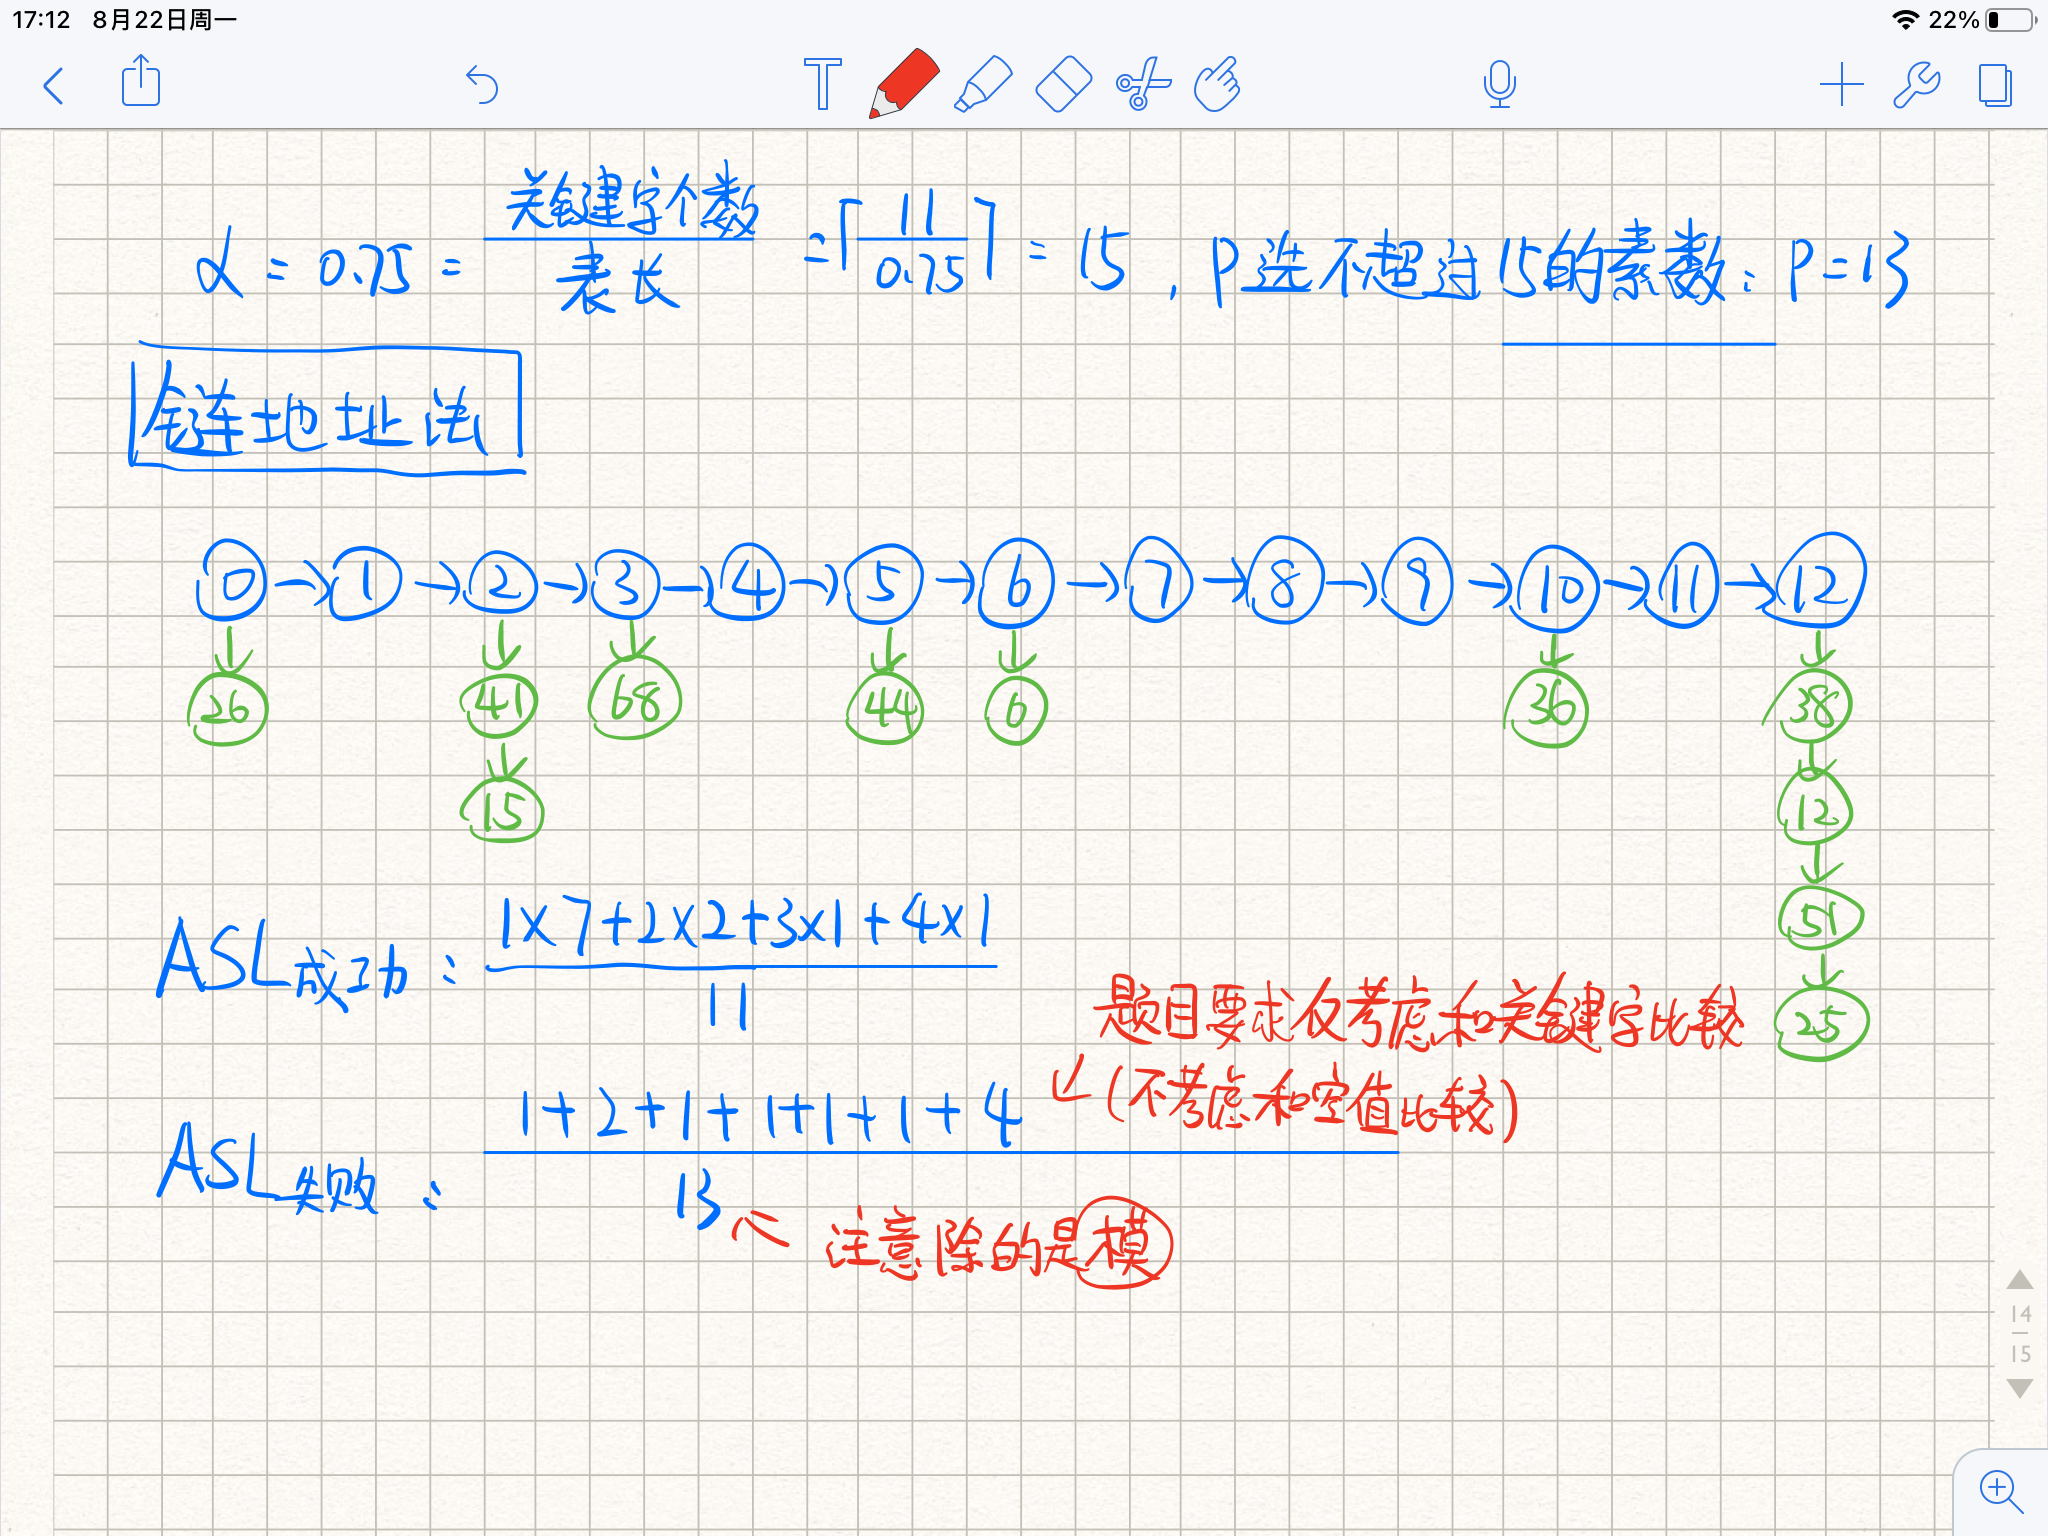 17:12 8月22日周一 22%
T
α = 0.75 = 关键字个数 / 表长 = ⌈11 / 0.75⌉ = 15 , P选不超过15的素数: P=13
链地址法
0 → 1 → 2 → 3 → 4 → 5 → 6 → 7 → 8 → 9 → 10 → 11 → 12
26 41 68 44 6 36 38
15 12
51
25
ASL成功: 1×7+2×2+3×1+4×1 / 11
题目要求仅考虑和关键字比较
(不考虑和空值比较)
ASL失败: 1+2+1+1+1+1+4 / 13
注意除的是模
14
15